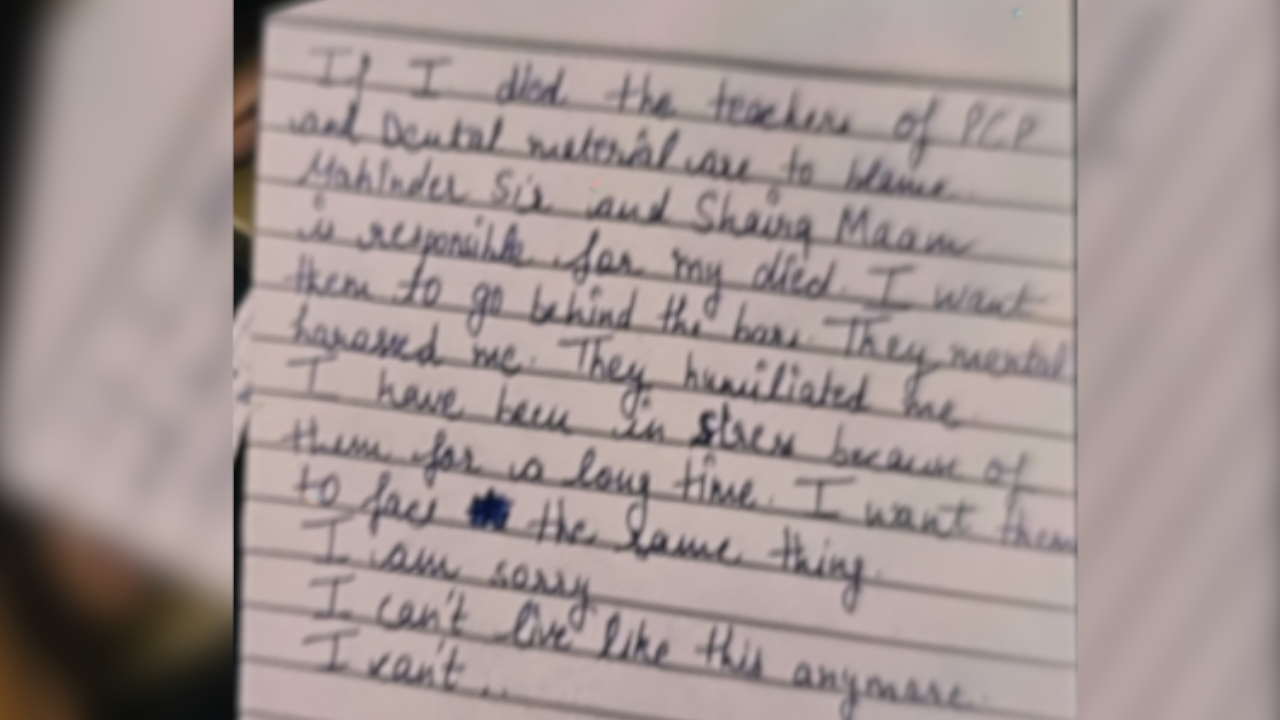 If I died the teachers of PCP
and Dental material are to blame.
Mahinder Sir and Shairg Maam
is responsible for my died. I want
them to go behind the bars. They mental
harassed me. They humiliated me
I have been in stress because of
them for a long time. I want them
to face the same thing.
I am sorry
I can't live like this anymore.
I can't..